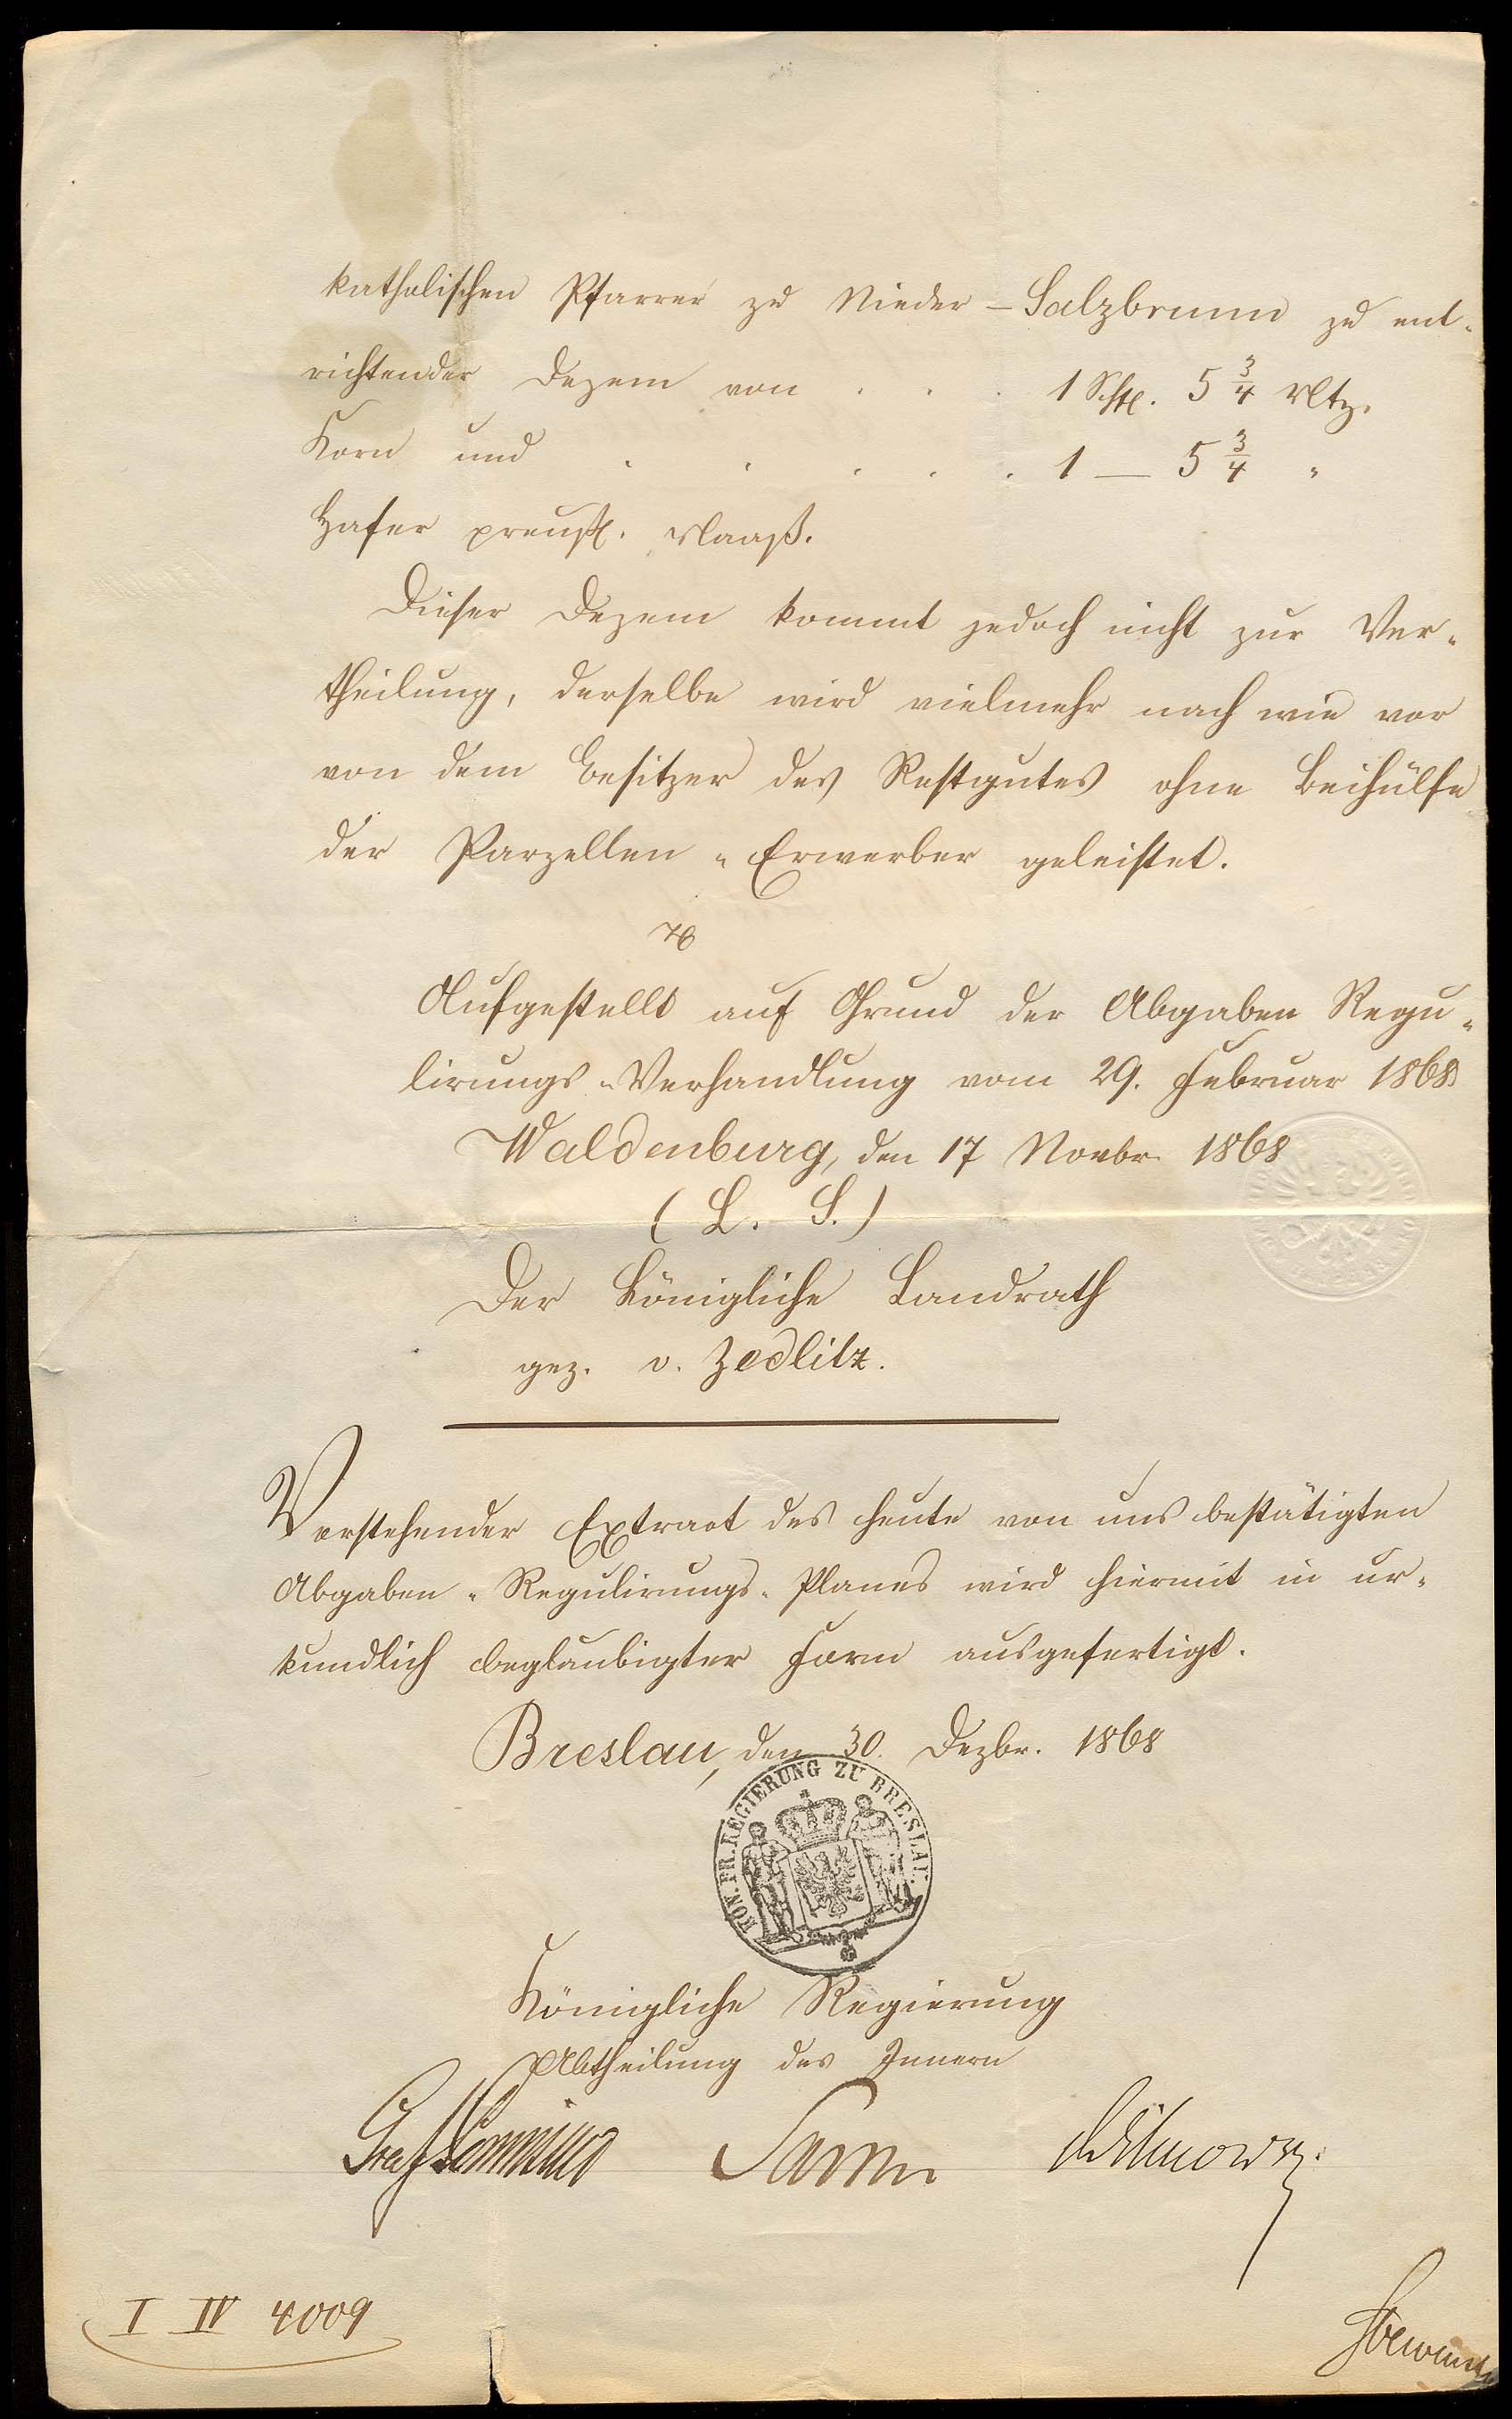 katholischen Pfarrer zu Nieder-Salzbrunn zu ent-
richtender Dezem von . . . 1 Schfl. 5 3/4 Mtz.
Korn und . . . . . 1 — 5 3/4 "
Hafer preuß. Maaß.
Dieser Dezem kommt jedoch nicht zur Ver-
theilung, derselbe wird vielmehr nach wie vor
von dem Besitzer des Restgutes ohne Beihülfe
der Parzellen-Erwerber geleistet.
Aufgestellt auf Grund der Abgaben Regu-
lirungs-Verhandlung vom 29. Februar 1868
Waldenburg, den 17 Novbr 1868
(L. S.)
Der Königliche Landrath
gez. v. Zedlitz.
Vorstehender Extract des heute von uns bestätigten
Abgaben-Regulirungs-Planes wird hiermit in ur-
kundlich beglaubigter Form ausgefertigt.
Breslau, den 30. Dezbr. 1868
KÖN. PR. REGIERUNG ZU BRESLAU.
Königliche Regierung
Abtheilung des Innern
Graf
I IV 4009